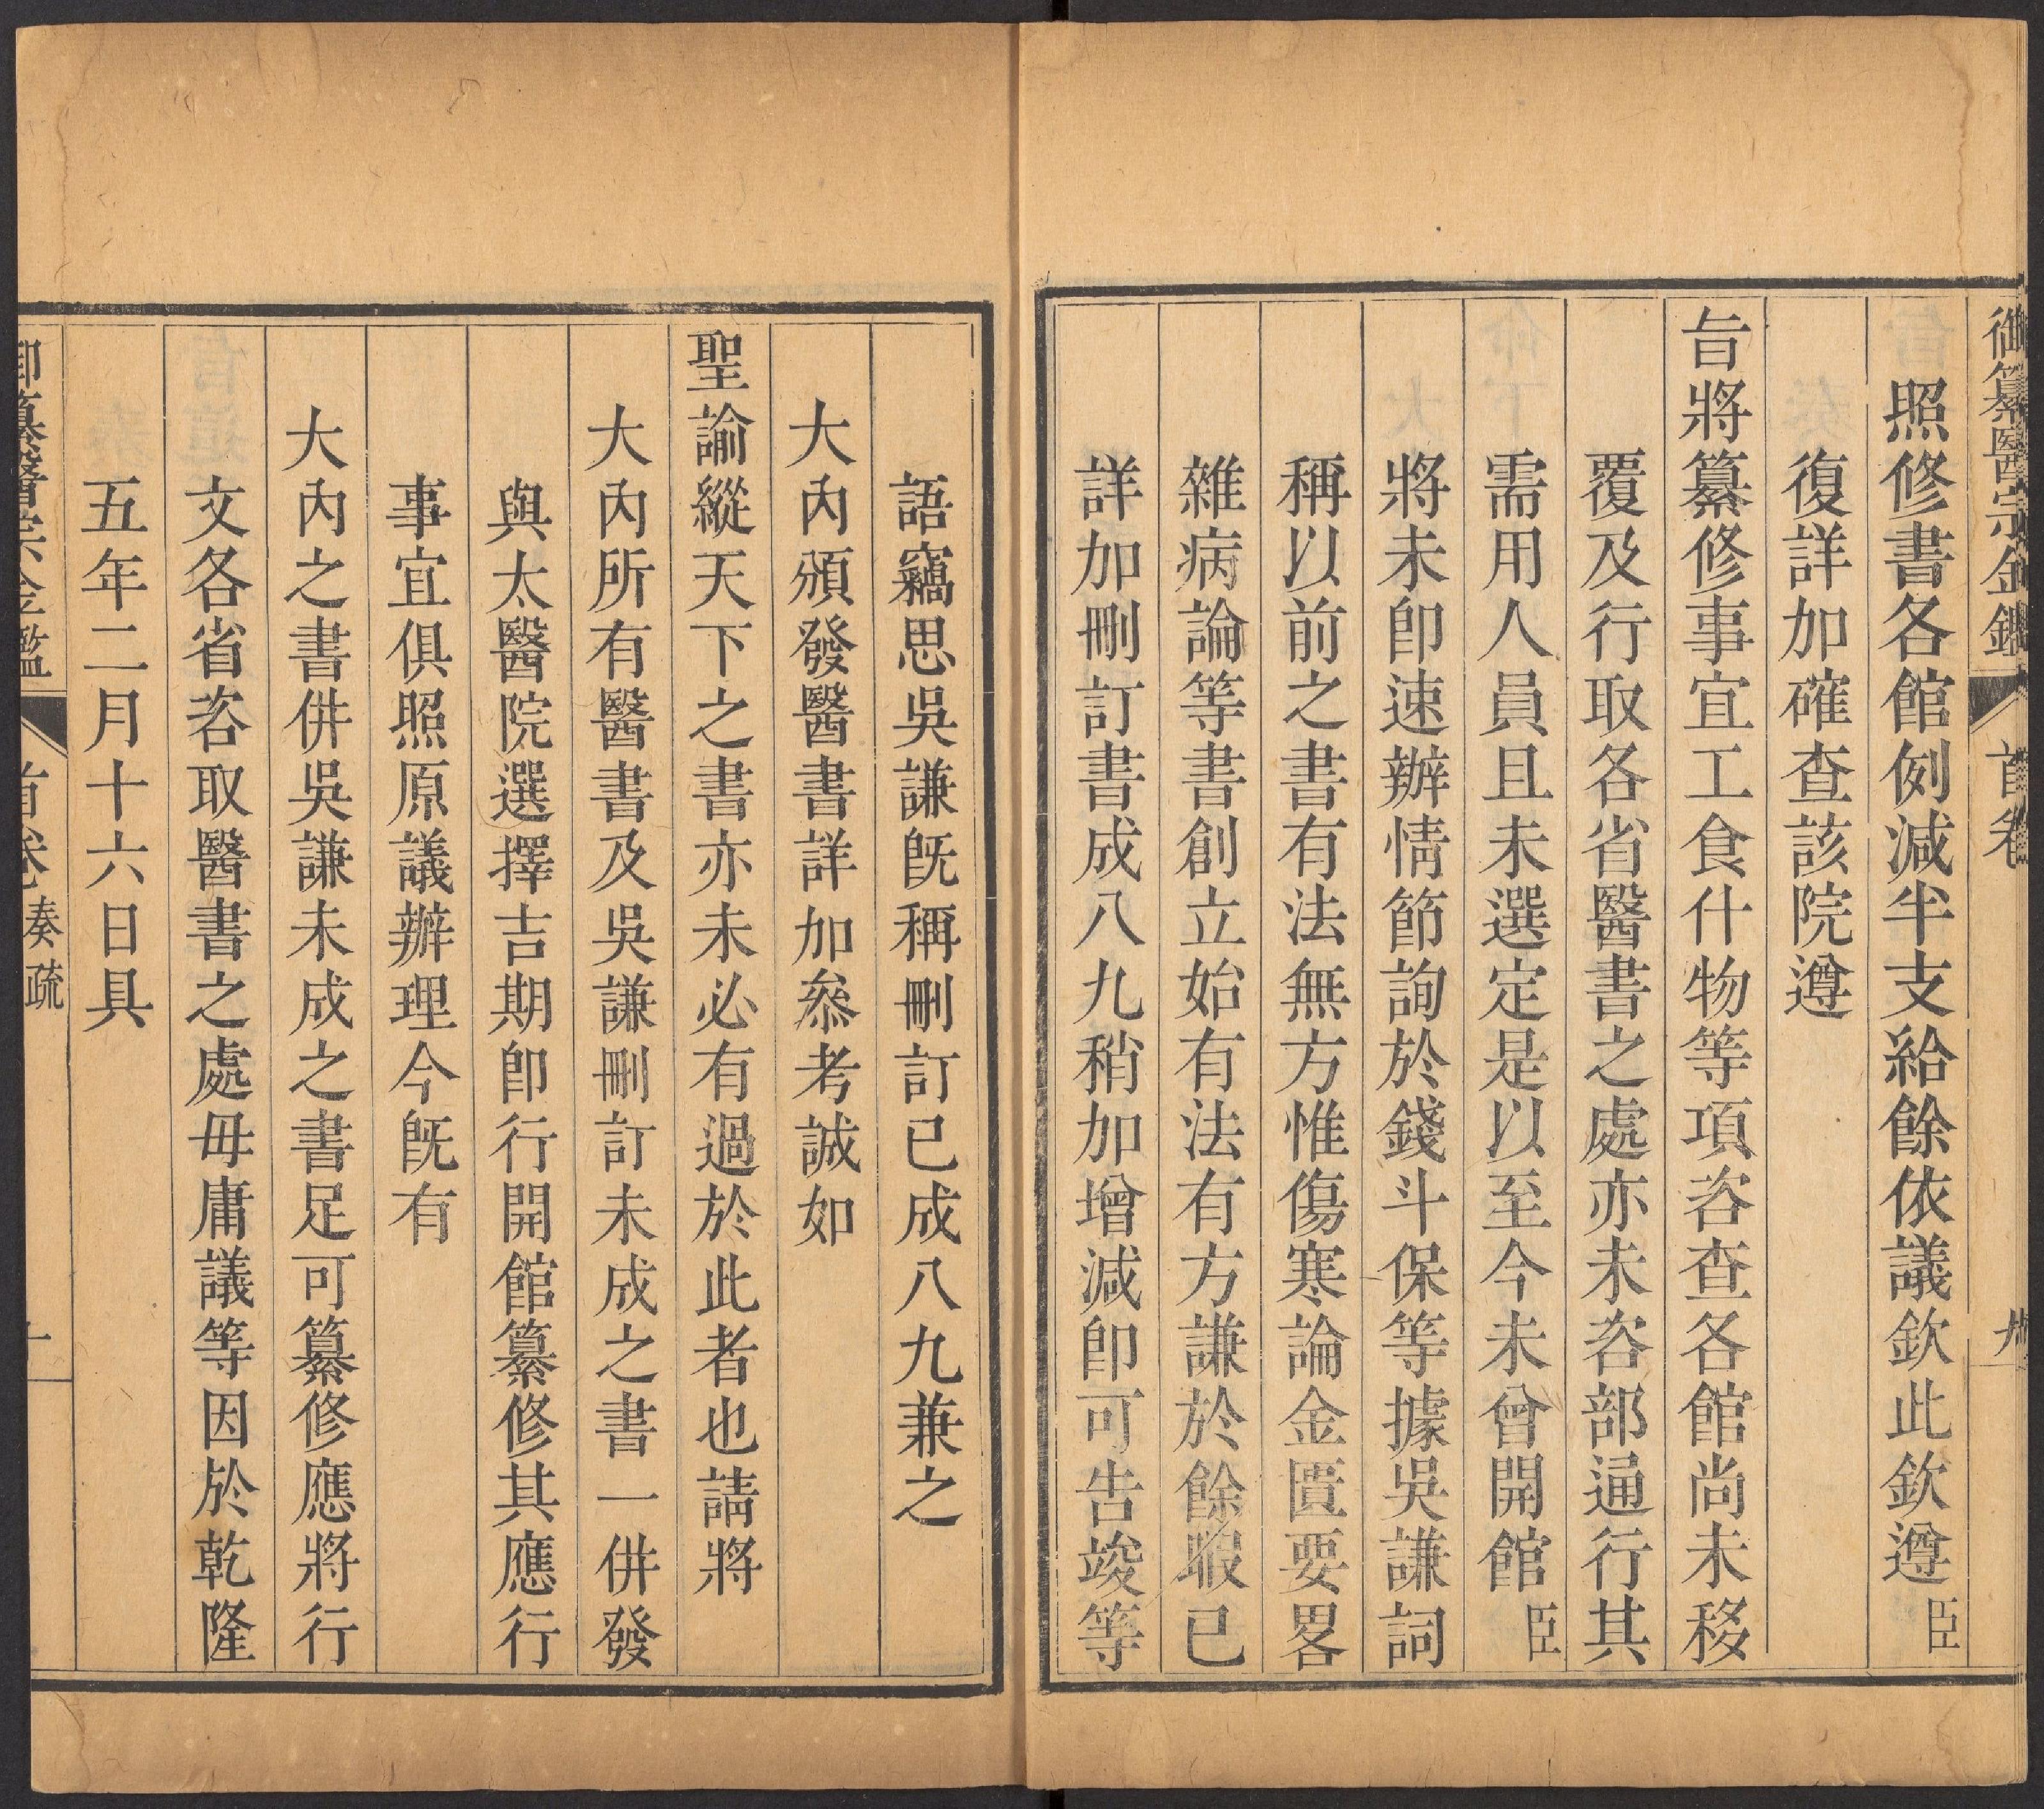 御纂醫宗金鑑 首卷 九
照修書各館例減半支給餘依議欽此欽遵臣
復詳加確查該院遵
旨將纂修事宜工食什物等項咨查各館尚未移
覆及行取各省醫書之處亦未咨部通行其
需用人員且未選定是以至今未曾開館臣
將未卽速辦情節詢於錢斗保等據吳謙詞
稱以前之書有法無方惟傷寒論金匱要畧
雜病論等書創立始有法有方謙於餘暇已
詳加刪訂書成八九稍加增減卽可告竣等
語竊思吳謙旣稱刪訂已成八九兼之
大內頒發醫書詳加叅考誠如
聖諭縱天下之書亦未必有過於此者也請將
大內所有醫書及吳謙刪訂未成之書一併發
與太醫院選擇吉期卽行開館纂修其應行
事宜俱照原議辦理今旣有
大內之書併吳謙未成之書足可纂修應將行
文各省咨取醫書之處毋庸議等因於乾隆
五年二月十六日具
御纂醫宗金鑑 首卷奏疏 十